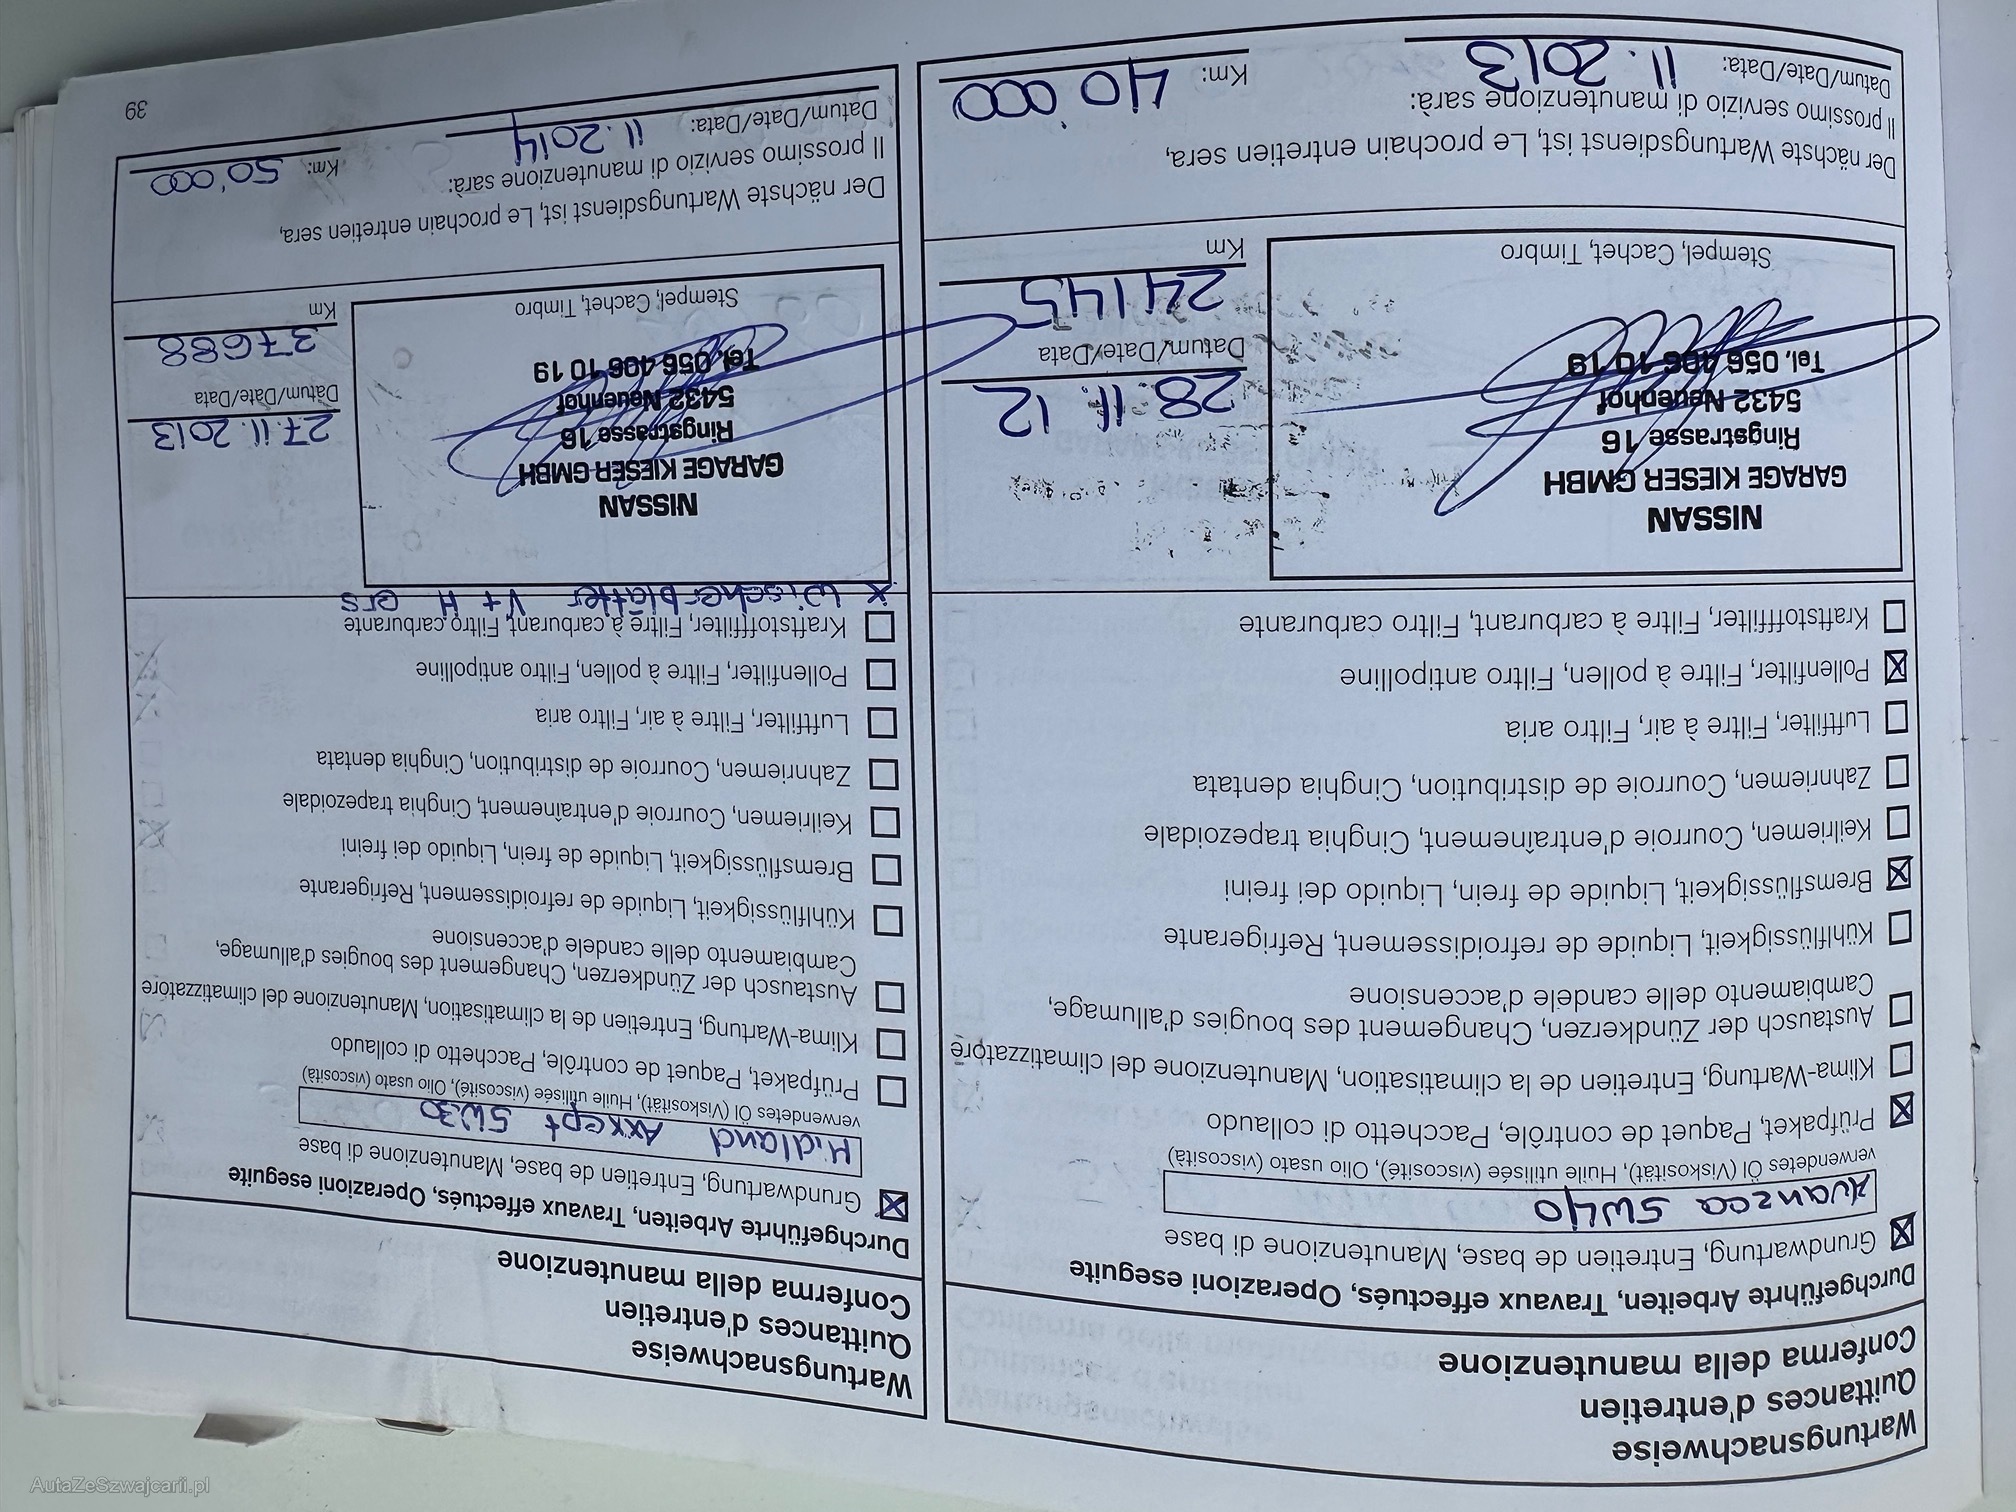 Wartungsnachweise
Quittances d'entretien
Conferma della manutenzione
Durchgeführte Arbeiten, Travaux effectués, Operazioni eseguite
☒ Grundwartung, Entretien de base, Manutenzione di base
Avanzaa 5W40
verwendetes Öl (Viskosität), Huile utilisée (viscosité), Olio usato (viscosità)
☒ Prüfpaket, Paquet de contrôle, Pacchetto di collaudo
☐ Klima-Wartung, Entretien de la climatisation, Manutenzione del climatizzatore
☐ Austausch der Zündkerzen, Changement des bougies d'allumage,
Cambiamento delle candele d'accensione
☐ Kühlflüssigkeit, Liquide de refroidissement, Refrigerante
☒ Bremsflüssigkeit, Liquide de frein, Liquido dei freini
☐ Keilriemen, Courroie d'entraînement, Cinghia trapezoidale
☐ Zahnriemen, Courroie de distribution, Cinghia dentata
☐ Luftfilter, Filtre à air, Filtro aria
☒ Pollenfilter, Filtre à pollen, Filtro antipolline
☐ Kraftstofffilter, Filtre à carburant, Filtro carburante
NISSAN
GARAGE KIESER GMBH
Ringstrasse 16
5432 Neuenhof
Tel. 056 406 10 19
Stempel, Cachet, Timbro
28.11.12
Datum/Date/Data
24145
Km
Der nächste Wartungsdienst ist, Le prochain entretien sera,
Il prossimo servizio di manutenzione sarà:
Datum/Date/Data: 11.2013 Km: 40'000
Wartungsnachweise
Quittances d'entretien
Conferma della manutenzione
Durchgeführte Arbeiten, Travaux effectués, Operazioni eseguite
☒ Grundwartung, Entretien de base, Manutenzione di base
Midland Axxept 5W30
verwendetes Öl (Viskosität), Huile utilisée (viscosité), Olio usato (viscosità)
☐ Prüfpaket, Paquet de contrôle, Pacchetto di collaudo
☐ Klima-Wartung, Entretien de la climatisation, Manutenzione del climatizzatore
☐ Austausch der Zündkerzen, Changement des bougies d'allumage,
Cambiamento delle candele d'accensione
☐ Kühlflüssigkeit, Liquide de refroidissement, Refrigerante
☐ Bremsflüssigkeit, Liquide de frein, Liquido dei freini
☐ Keilriemen, Courroie d'entraînement, Cinghia trapezoidale
☐ Zahnriemen, Courroie de distribution, Cinghia dentata
☐ Luftfilter, Filtre à air, Filtro aria
☐ Pollenfilter, Filtre à pollen, Filtro antipolline
☐ Kraftstofffilter, Filtre à carburant, Filtro carburante
x Wischerblätter V+H ers
NISSAN
GARAGE KIESER GMBH
Ringstrasse 16
5432 Neuenhof
Tel. 056 406 10 19
Stempel, Cachet, Timbro
27.11.2013
Datum/Date/Data
37688
Km
Der nächste Wartungsdienst ist, Le prochain entretien sera,
Il prossimo servizio di manutenzione sarà:
Datum/Date/Data: 11.2014 Km: 50'000
39
AutaZeSzwajcarii.pl